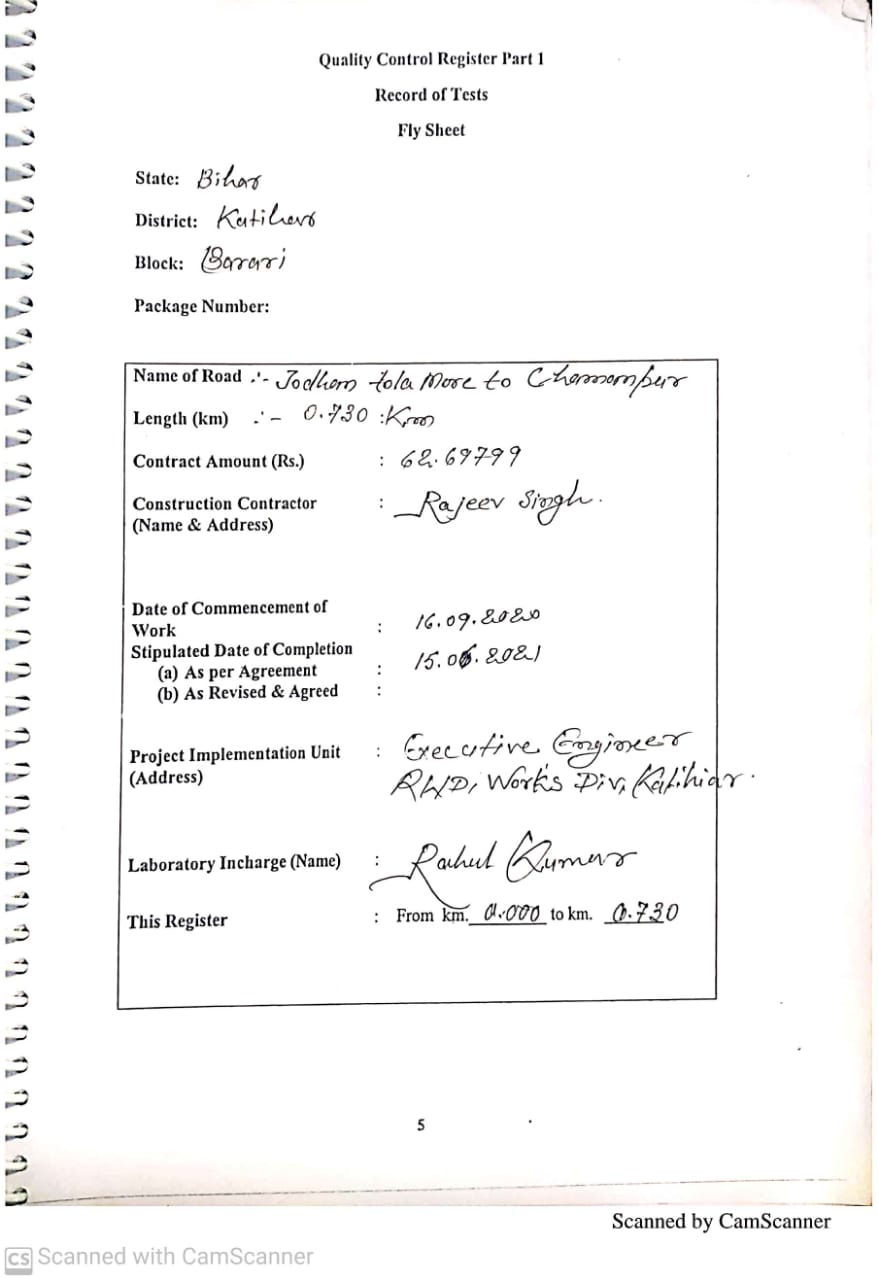 Quality Control Register Part 1
Record of Tests
Fly Sheet
State: Bihar
District: Katihar
Block: Barari
Package Number:
Name of Road :- Jodham tola More to
Length (km) :- 0.730 :Km
Contract Amount (Rs.) : 62.69799
Construction Contractor : Rajeev Singh.
(Name & Address)
Date of Commencement of
Work : 16.09.2020
Stipulated Date of Completion
(a) As per Agreement : 15.06.2021
(b) As Revised & Agreed :
Project Implementation Unit : Executive Engineer
(Address) RWD, Works Div, Katihiar.
Laboratory Incharge (Name) : Rahul Kumar
This Register : From km. 0.000 to km. 0.730
5
Scanned by CamScanner
CS Scanned with CamScanner